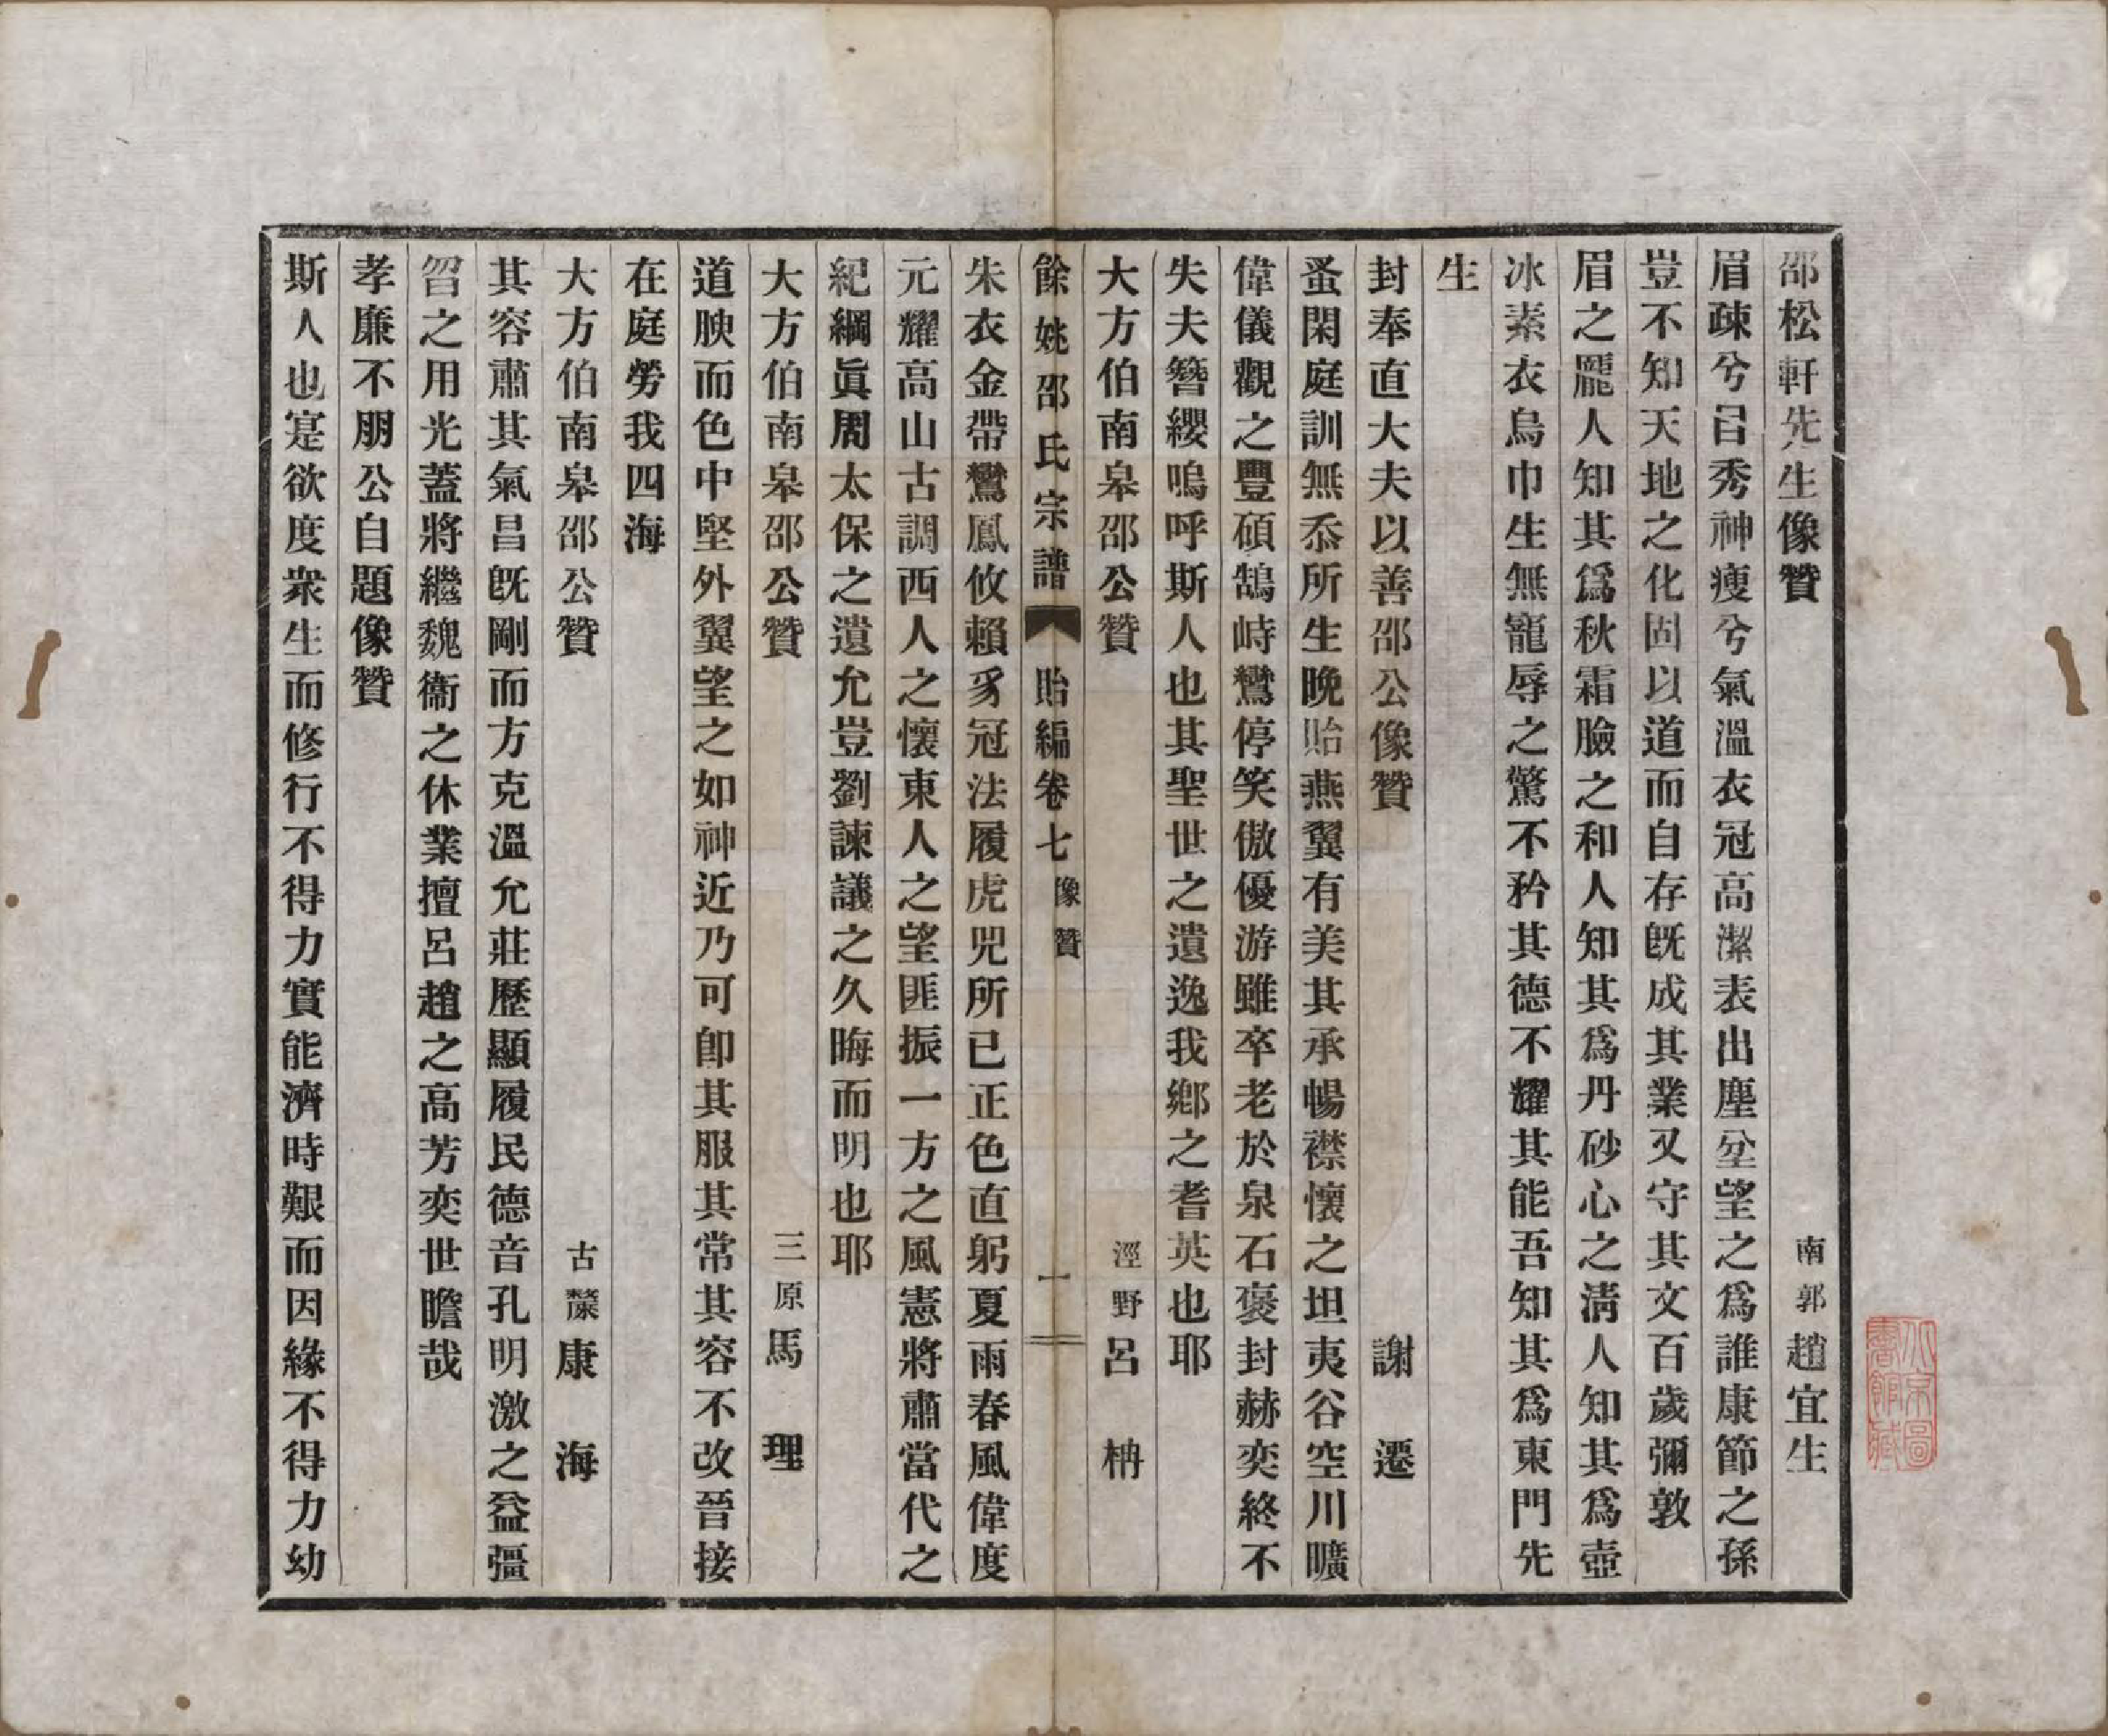 邵松軒先生像贊　南郭趙宜生
眉疎兮㠯秀神瘦兮氣溫衣冠高潔表出塵坌望之爲誰康節之孫
豈不知天地之化固以道而自存旣成其業又守其文百歲彌敦
眉之龎人知其爲秋霜臉之和人知其爲丹砂心之淸人知其爲壺
冰素衣烏巾生無寵辱之驚不矜其德不耀其能吾知其爲東門先
生
封奉直大夫以善邵公像贊　謝　遷
蚤閑庭訓無忝所生晚貽燕翼有美其承暢襟懷之坦夷谷空川曠
偉儀觀之豐碩鵠峙鸞停笑傲優游雖卒老於泉石褒封赫奕終不
失夫簪纓嗚呼斯人也其聖世之遺逸我鄉之耆英也耶
大方伯南皋邵公贊　涇野呂　柟
餘姚邵氏宗譜　貽編卷七　像贊　一
朱衣金帶鸞鳳攸賴豸冠法履虎兕所已正色直躬夏雨春風偉度
元耀高山古調西人之懷東人之望匪振一方之風憲將肅當代之
紀綱眞周太保之遺允豈劉諫議之久晦而明也耶
大方伯南皋邵公贊　三原馬　理
道腴而色中堅外翼望之如神近乃可卽其服其常其容不改晉接
在庭勞我四海
大方伯南皋邵公贊　古漦康　海
其容肅其氣昌旣剛而方克溫允莊歷顯履民德音孔明激之益彊
習之用光蓋將繼魏衞之休業擅呂趙之高芳奕世瞻哉
孝廉不朋公自題像贊
斯人也寔欲度衆生而修行不得力實能濟時艱而因緣不得力幼